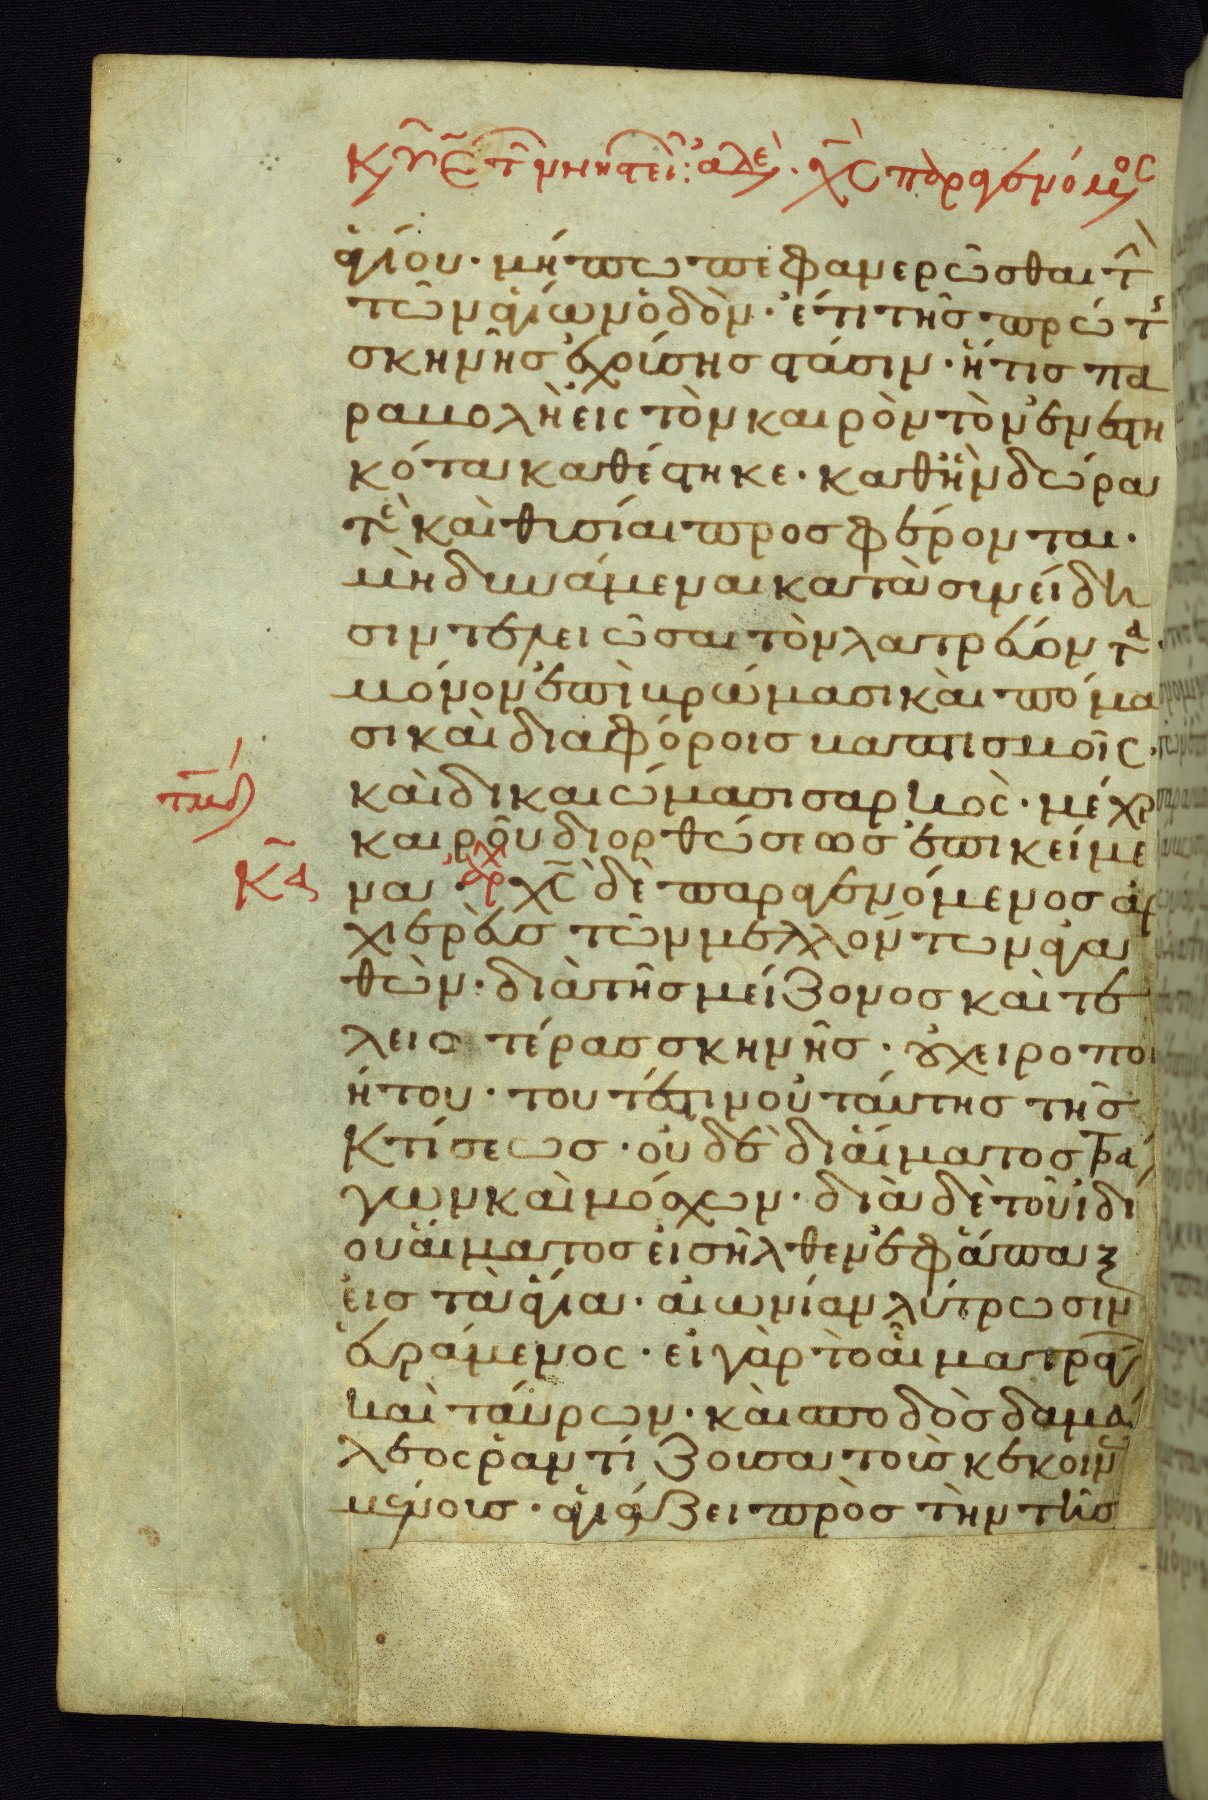 Κυ ε τ νηστει: ἀδελ. χς παραγενόμος
ἁγίου· μήπω πεφανερῶσθαι τ
τῶν ἁγίων ὁδὸν· ἔτι τῆς πρώτ
σκηνῆς ἐχούσης στάσιν· ἥτις πα
ραβολὴ εἰς τὸν καιρὸν τὸν ἐνεστη
κότα καθέστηκε· καθ ἣν δῶρα
τὲ καὶ θυσίαι προσφέρονται·
μὴ δυνάμεναι κατὰ συνείδη
σιν τελειῶσαι τὸν λατρεύοντα·
μόνον ἐπὶ βρώμασι καὶ πόμα
σι καὶ διαφόροις βαπτισμοῖς·
καὶ δικαιώμασι σαρκὸς· μέχρ
καιροῦ διορθώσεως ἐπικείμε
να· ἀρχ χς δὲ παραγενόμενος ἀρ
χιερεὺς τῶν μελλόντων ἀγα
θῶν· διὰ τῆς μείζονος καὶ τε
λειοτέρας σκηνῆς· οὐ χειροποι
ήτου· τουτέστιν οὐ ταύτης τῆς
κτίσεως· οὐδὲ δι αἵματος τρά
γων καὶ μόσχων· διὰ δὲ τοῦ ἰδί
ου αἵματος εἰσῆλθεν ἐφάπαξ
εἰς τὰ ἅγια· αἰωνίαν λύτρωσιν
εὑράμενος· εἰ γὰρ τὸ αἷμα τραγ
καὶ ταύρων· καὶ σποδὸς δαμά
λεος ῥαντίζουσα τοὺς κεκοινω
μένους· ἁγιάζει πρὸς τὴν τῆς